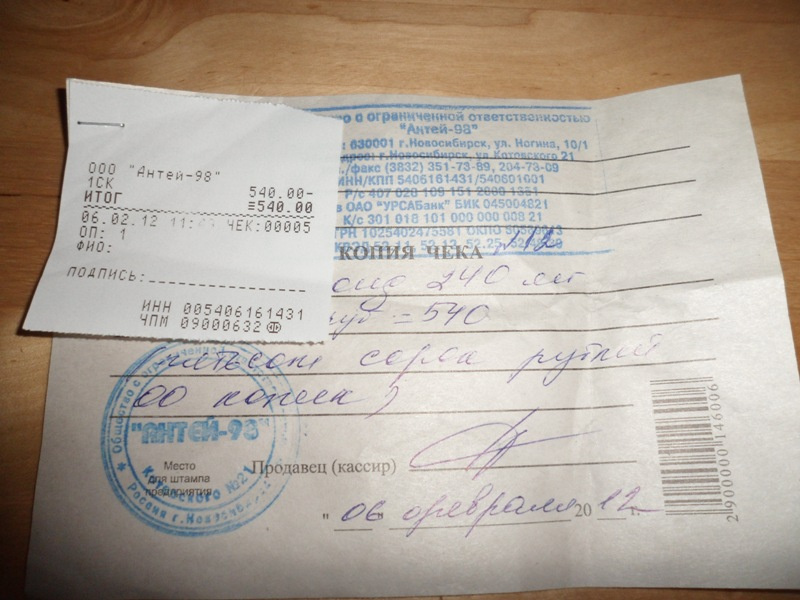 ООО "Антей-98"
1СК 540.00-
ИТОГ ≡540.00
06.02.12 ЧЕК:00005
ОП: 1
ФИО:
ПОДПИСЬ:
ИНН 005406161431
ЧПМ 09000632
о ограниченной ответственностью
"Антей-98"
: 630001 г.Новосибирск, ул. Ногина, 10/1
г.Новосибирск, ул Котовского 21
./факс (3832) 351-73-89, 204-73-09
ИНН/КПП 5406161431/540601001
Р/с 407 028 109 151 2000 1351
в ОАО "УРСАБанк" БИК 045004821
К/с 301 018 101 000 000 008 21
1025402475581 ОКПО
КОПИЯ ЧЕКА 12
240 мл
=540
сорок рублей
00 копеек)
Общество с ограниченной
"АНТЕЙ-98"
Котовского №21
Россия г.Новосибирск
Место
для штампа
предприятия
Продавец (кассир)
"06" февраля 2012 г.
2900000 146006